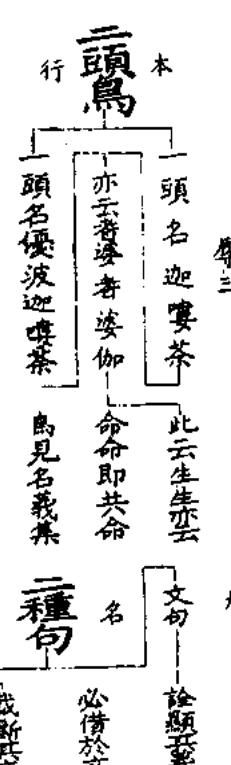 二頭鳥
本
行
一頭名迦嘍茶
亦云耆婆耆婆伽
一頭名優波迦嘍茶
此云生生亦云
命命即共命
鳥見名義集
二種句
名
文句
詮顯
必借於